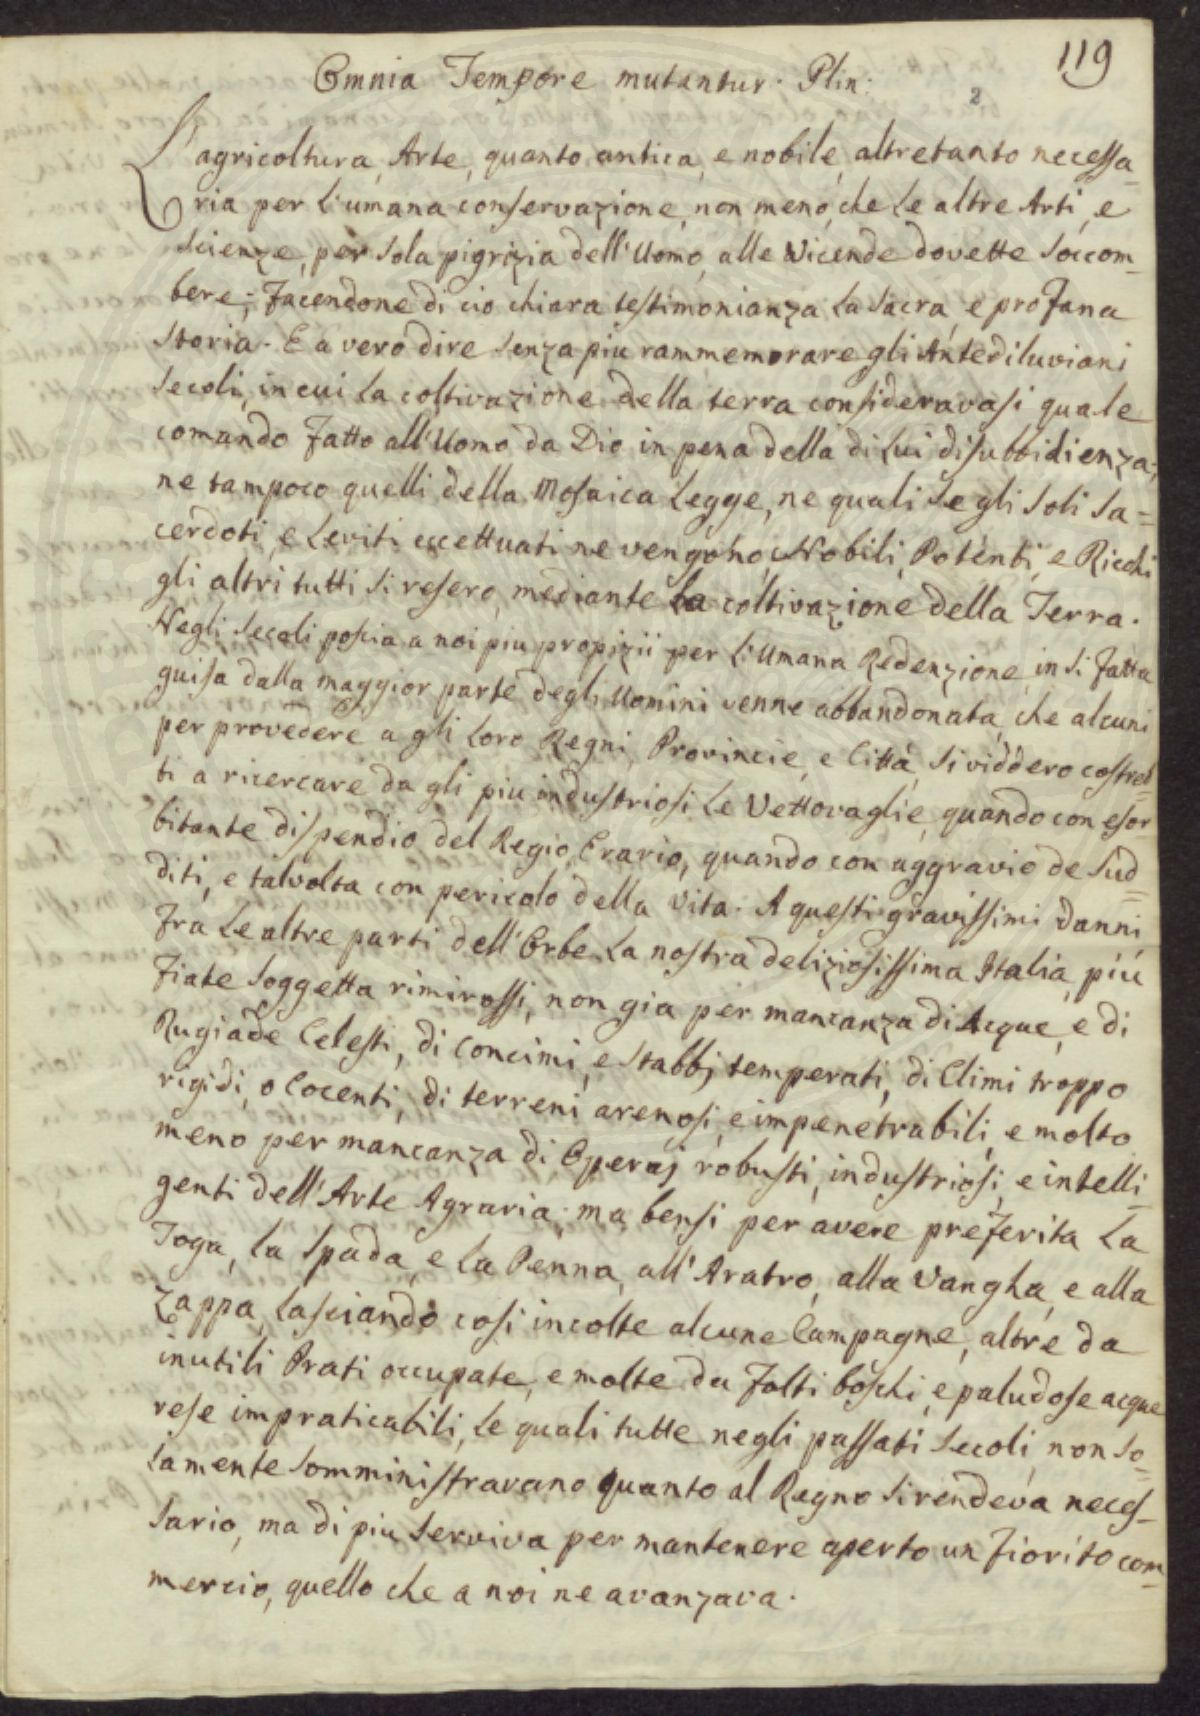 119
Omnia Tempore mutantur. Plin:
2
L'agricoltura, Arte, quanto antica, e nobile, altretanto necessa=
ria per l'umana conservazione, non meno, che le altre Arti, e
scienze, per sola pigrizia dell'Uomo, alle vicende dovette soccom=
bere; facendone di cio chiara testimonianza la sacra, e profana
storia. E a vero dire senza piu rammemorare gli Antediluviani
secoli, in cui la coltivazione della terra consideravasi quale
comando fatto all'Uomo da Dio in pena della di lui disubbidienza;
ne tampoco quelli della Mosaica Legge, ne quali se gli soli Sa=
cerdoti, e Leviti eccettuati ne vengono, Nobili, Potenti, e Ricchi
gli altri tutti si resero, mediante la coltivazione della Terra.
Negli secoli poscia a noi piu propizii per l'Umana Redenzione, in si fatta
guisa dalla maggior parte degli Uomini venne abbandonata, che alcuni
per provedere a gli loro Regni, Provincie, e Città, si viddero costret=
ti a ricercare da gli piu industriosi le Vettovaglie, quando con esor=
bitante dispendio del Regio Erario, quando con aggravio de Sud=
diti, e talvolta con pericolo della vita. A questi gravissimi danni
fra le altre parti dell'Orbe la nostra deliziosissima Italia, più
fiate soggetta rimirossi, non gia per mancanza di Acque, e di
Rugiade Celesti, di Concimi, e stabbj temperati, di Climi troppo
rigidi, o Cocenti, di terreni arenosi, e impenetrabili, e molto
meno per mancanza di Operaj robusti, industriosi, e intelli=
genti dell'Arte Agraria; ma bensi per avere preferita la
Toga, la Spada, e la Penna, all'Aratro, alla Vangha, e alla
Zappa, lasciando cosi incolte alcune Campagne, altre da
inutili Prati occupate, e molte da folti boschi, e paludose acque
rese impraticabili, le quali tutte negli passati secoli, non so=
lamente somministravano quanto al Regno si rendeva neces=
sario, ma di piu serviva per mantenere aperto un fiorito com=
mercio, quello che a noi ne avanzava.